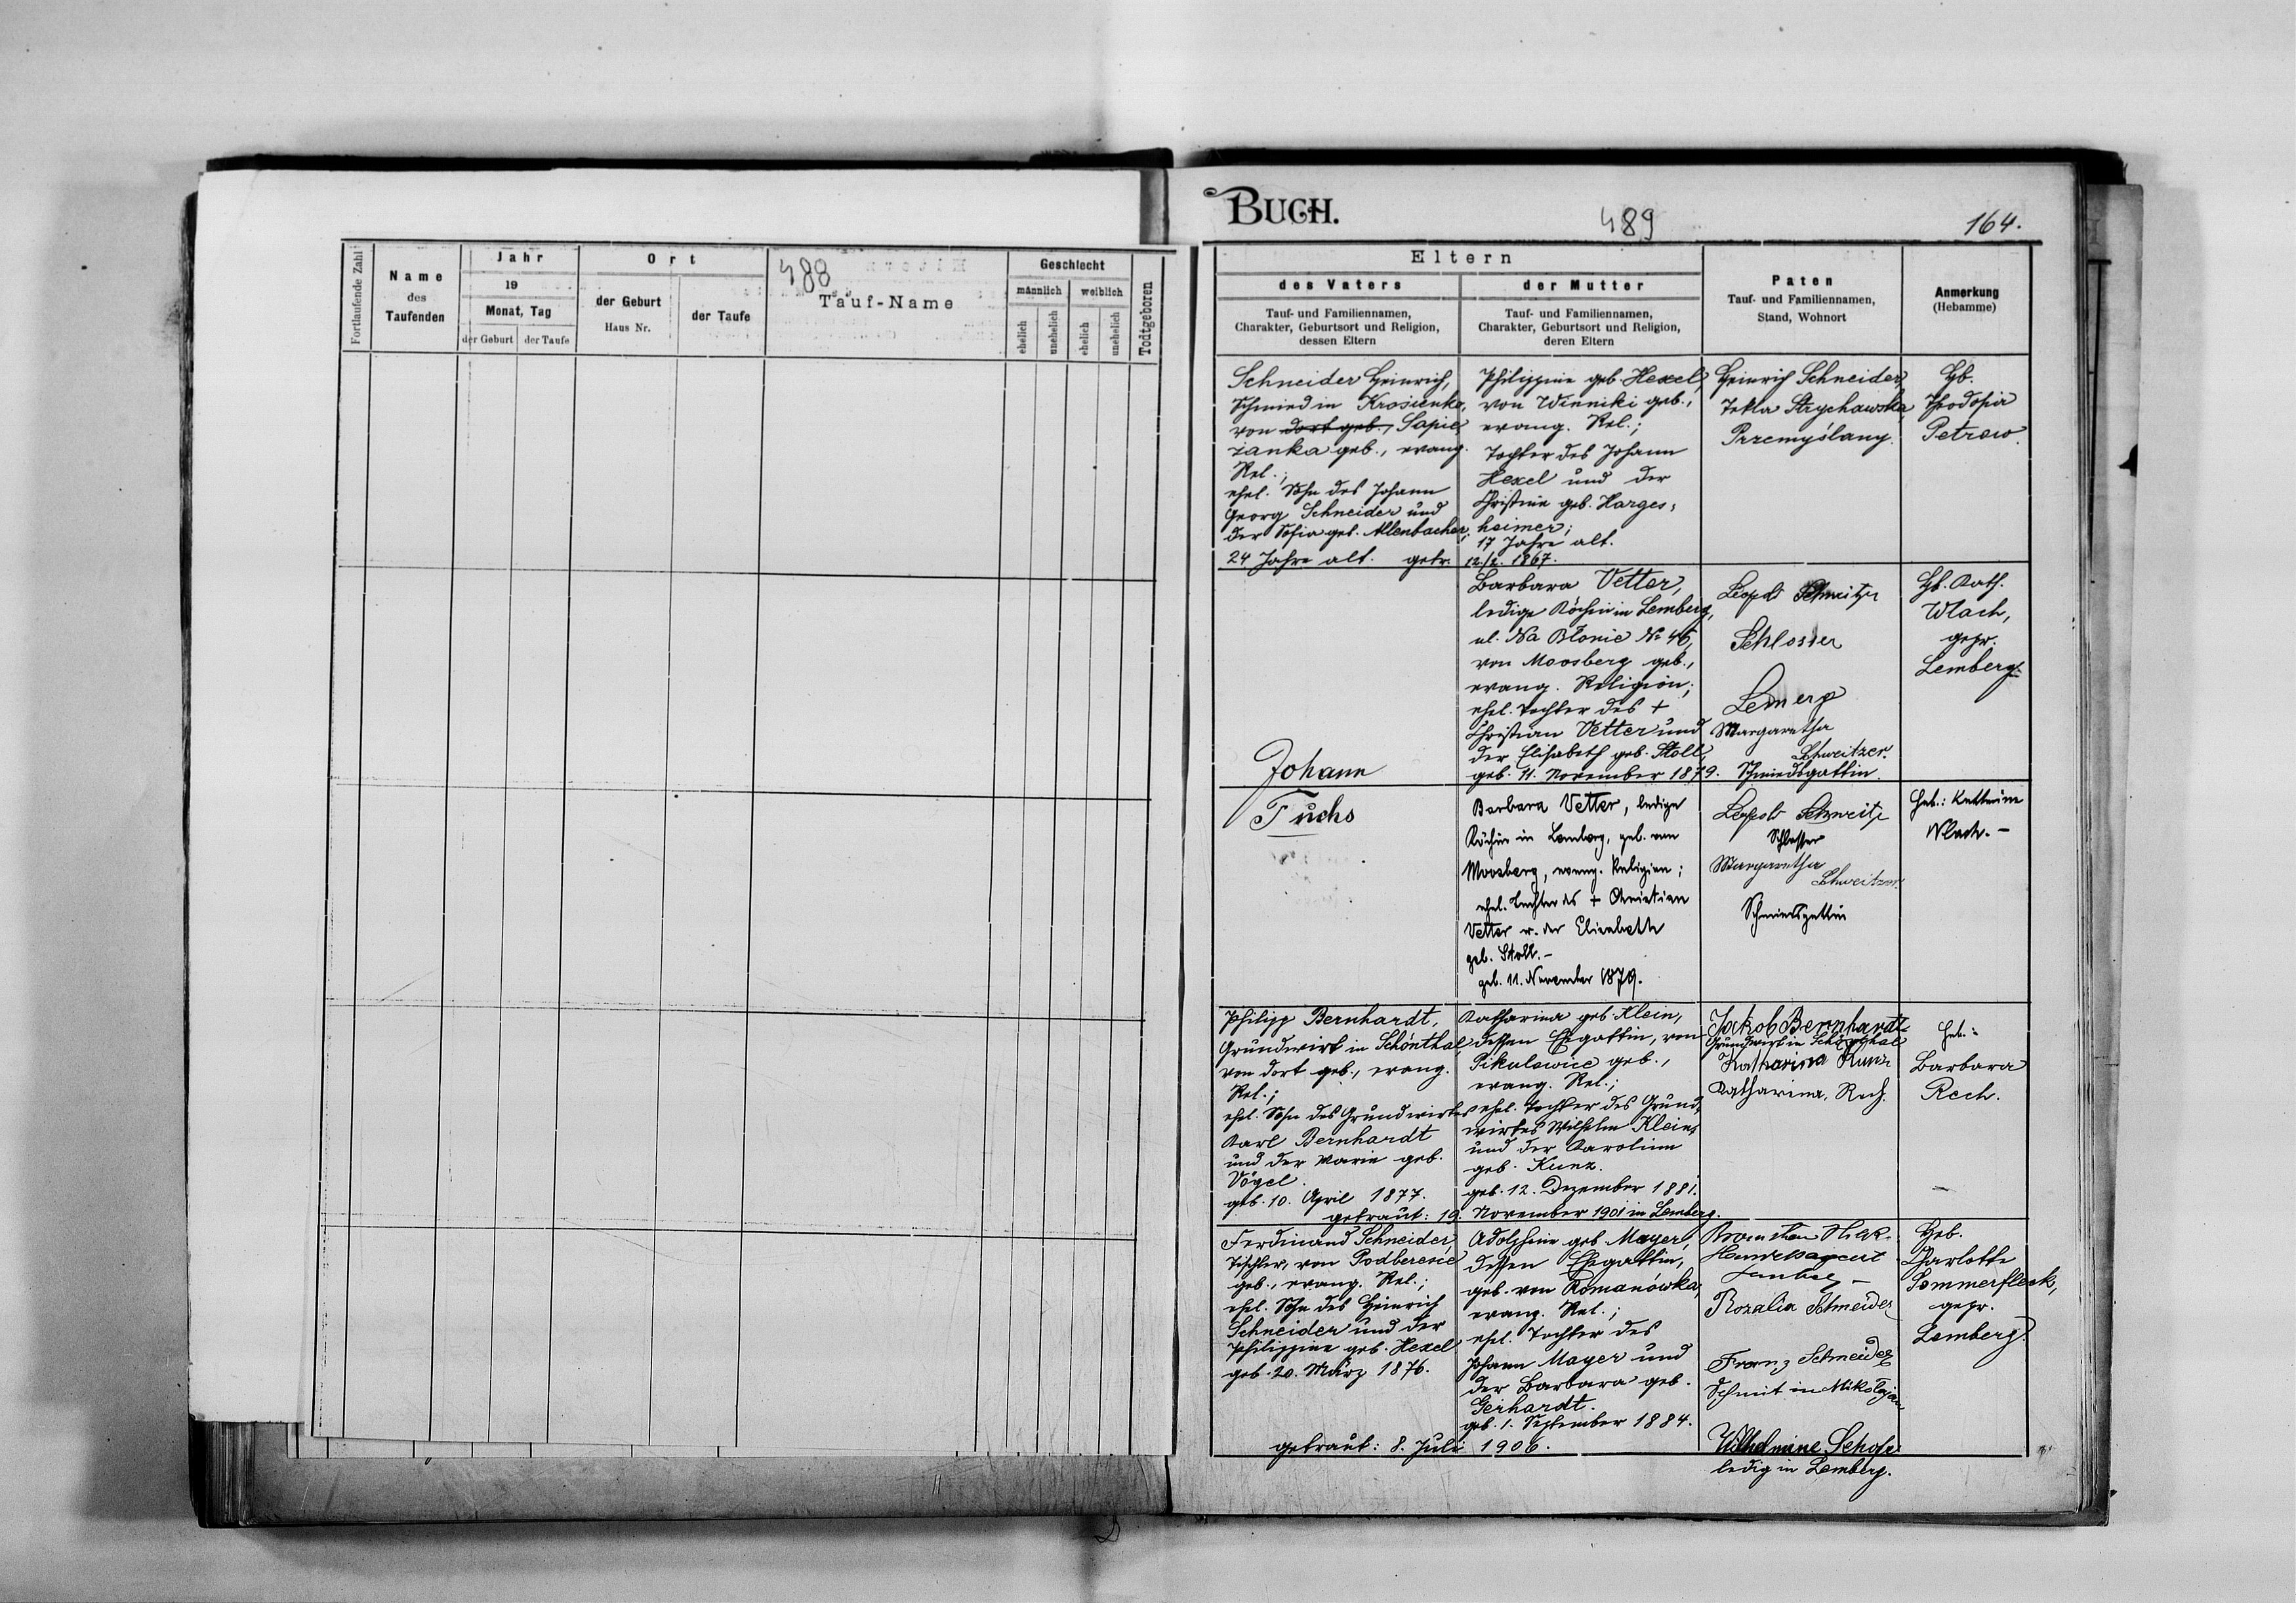 488
Fortlaufende Zahl
Name
des
Taufenden
Jahr
19
Monat, Tag
der Geburt
der Taufe
Ort
der Geburt
Haus Nr.
der Taufe
Tauf-Name
Geschlecht
männlich
weiblich
ehelich
unehelich
ehelich
unehelich
Todtgeboren
BUCH.
489
164.
Eltern
des Vaters
Tauf- und Familiennamen,
Charakter, Geburtsort und Religion,
dessen Eltern
der Mutter
Tauf- und Familiennamen,
Charakter, Geburtsort und Religion,
deren Eltern
Paten
Tauf- und Familiennamen,
Stand, Wohnort
Anmerkung
(Hebamme)
Schneider Heinrich,
Schmied in Krosienko,
von dort geb., Sapie
zanka geb., evang.
Rel.;
ehel. Sohn des Johann
Georg Schneider und
der Sofia geb. Allenbacher,
24 Jahre alt. getr. 12./2. 1867.
Philippine geb. Hexel,
von Winniki geb.,
evang. Rel.;
Tochter des Johann
Hexel und der
Christine geb. Harges-
heimer;
17 Jahre alt.
Heinrich Schneider,
Tekla Strychawska,
Przemyślany.
Hb.
Theodosia
Petrow.
Johann
Fuchs
Barbara Vetter,
ledige Köchin in Lemberg,
ul. Na Błonie No 45,
von Moosberg geb.,
evang. Religion;
ehel. Tochter des +
Christian Vetter und
der Elisabeth geb. Stoll,
geb. 11. November 1879.
Schlosser
Margaretha
Schweitzer.
Schmiedsgattin.
Hb. Kath.
Wlach,
gepr.
Lemberg.
Barbara Vetter, ledige
Köchin in Lemberg, geb. von
Moosberg, evang. Religion;
ehel. Tochter des + Christian
Vetter u. der Elisabeth
geb. Stoll.-
geb. 11. November 1879.
Schlosser
Margaretha
Schweitzer.
Schmiedsgattin
Heb.: Katharine
Wlach.-
Philipp Bernhardt,
Grundwirt in Schönthal,
von dort geb., evang.
Rel.;
ehel. Sohn des Grundwirtes
Karl Bernhardt
und der Marie geb.
Vögel.
geb. 10. April 1877.
getraut: 19. November 1901 in Lemberg.
Katharina geb. Klein,
dessen Ehegattin, von
Pikulowice geb.,
evang. Rel.;
ehel. Tochter des Grund-
wirtes Wilhelm Klein,
und der Karoline
geb. Kunz.
geb. 12. Dezember 1881.
Jakob Bernhardt
Grundwirt in Schönthal
Katharina Kunz
Katharina Rech.
Heb.:
Barbara
Rech.
Ferdinand Schneider,
Tischler, von Podberesie
geb., evang. Rel.;
ehel. Sohn des Heinrich
Schneider und der
Philippine geb. Hexel
geb. 20. März 1876.
getraut: 8. Juli 1906.
Adolphine geb. Mayer,
dessen Ehegattin,
geb. von Romanówka,
evang. Rel.;
ehel. Tochter des
Johann Mayer und
der Barbara geb.
Gerhardt.
geb. 1. September 1884.
Rozalia Schneider
Franz Schneider
Schmit in
Wilhelmine
ledig in Lemberg.
Heb.
Charlotte
Sommerfleck,
gepr.
Lemberg.